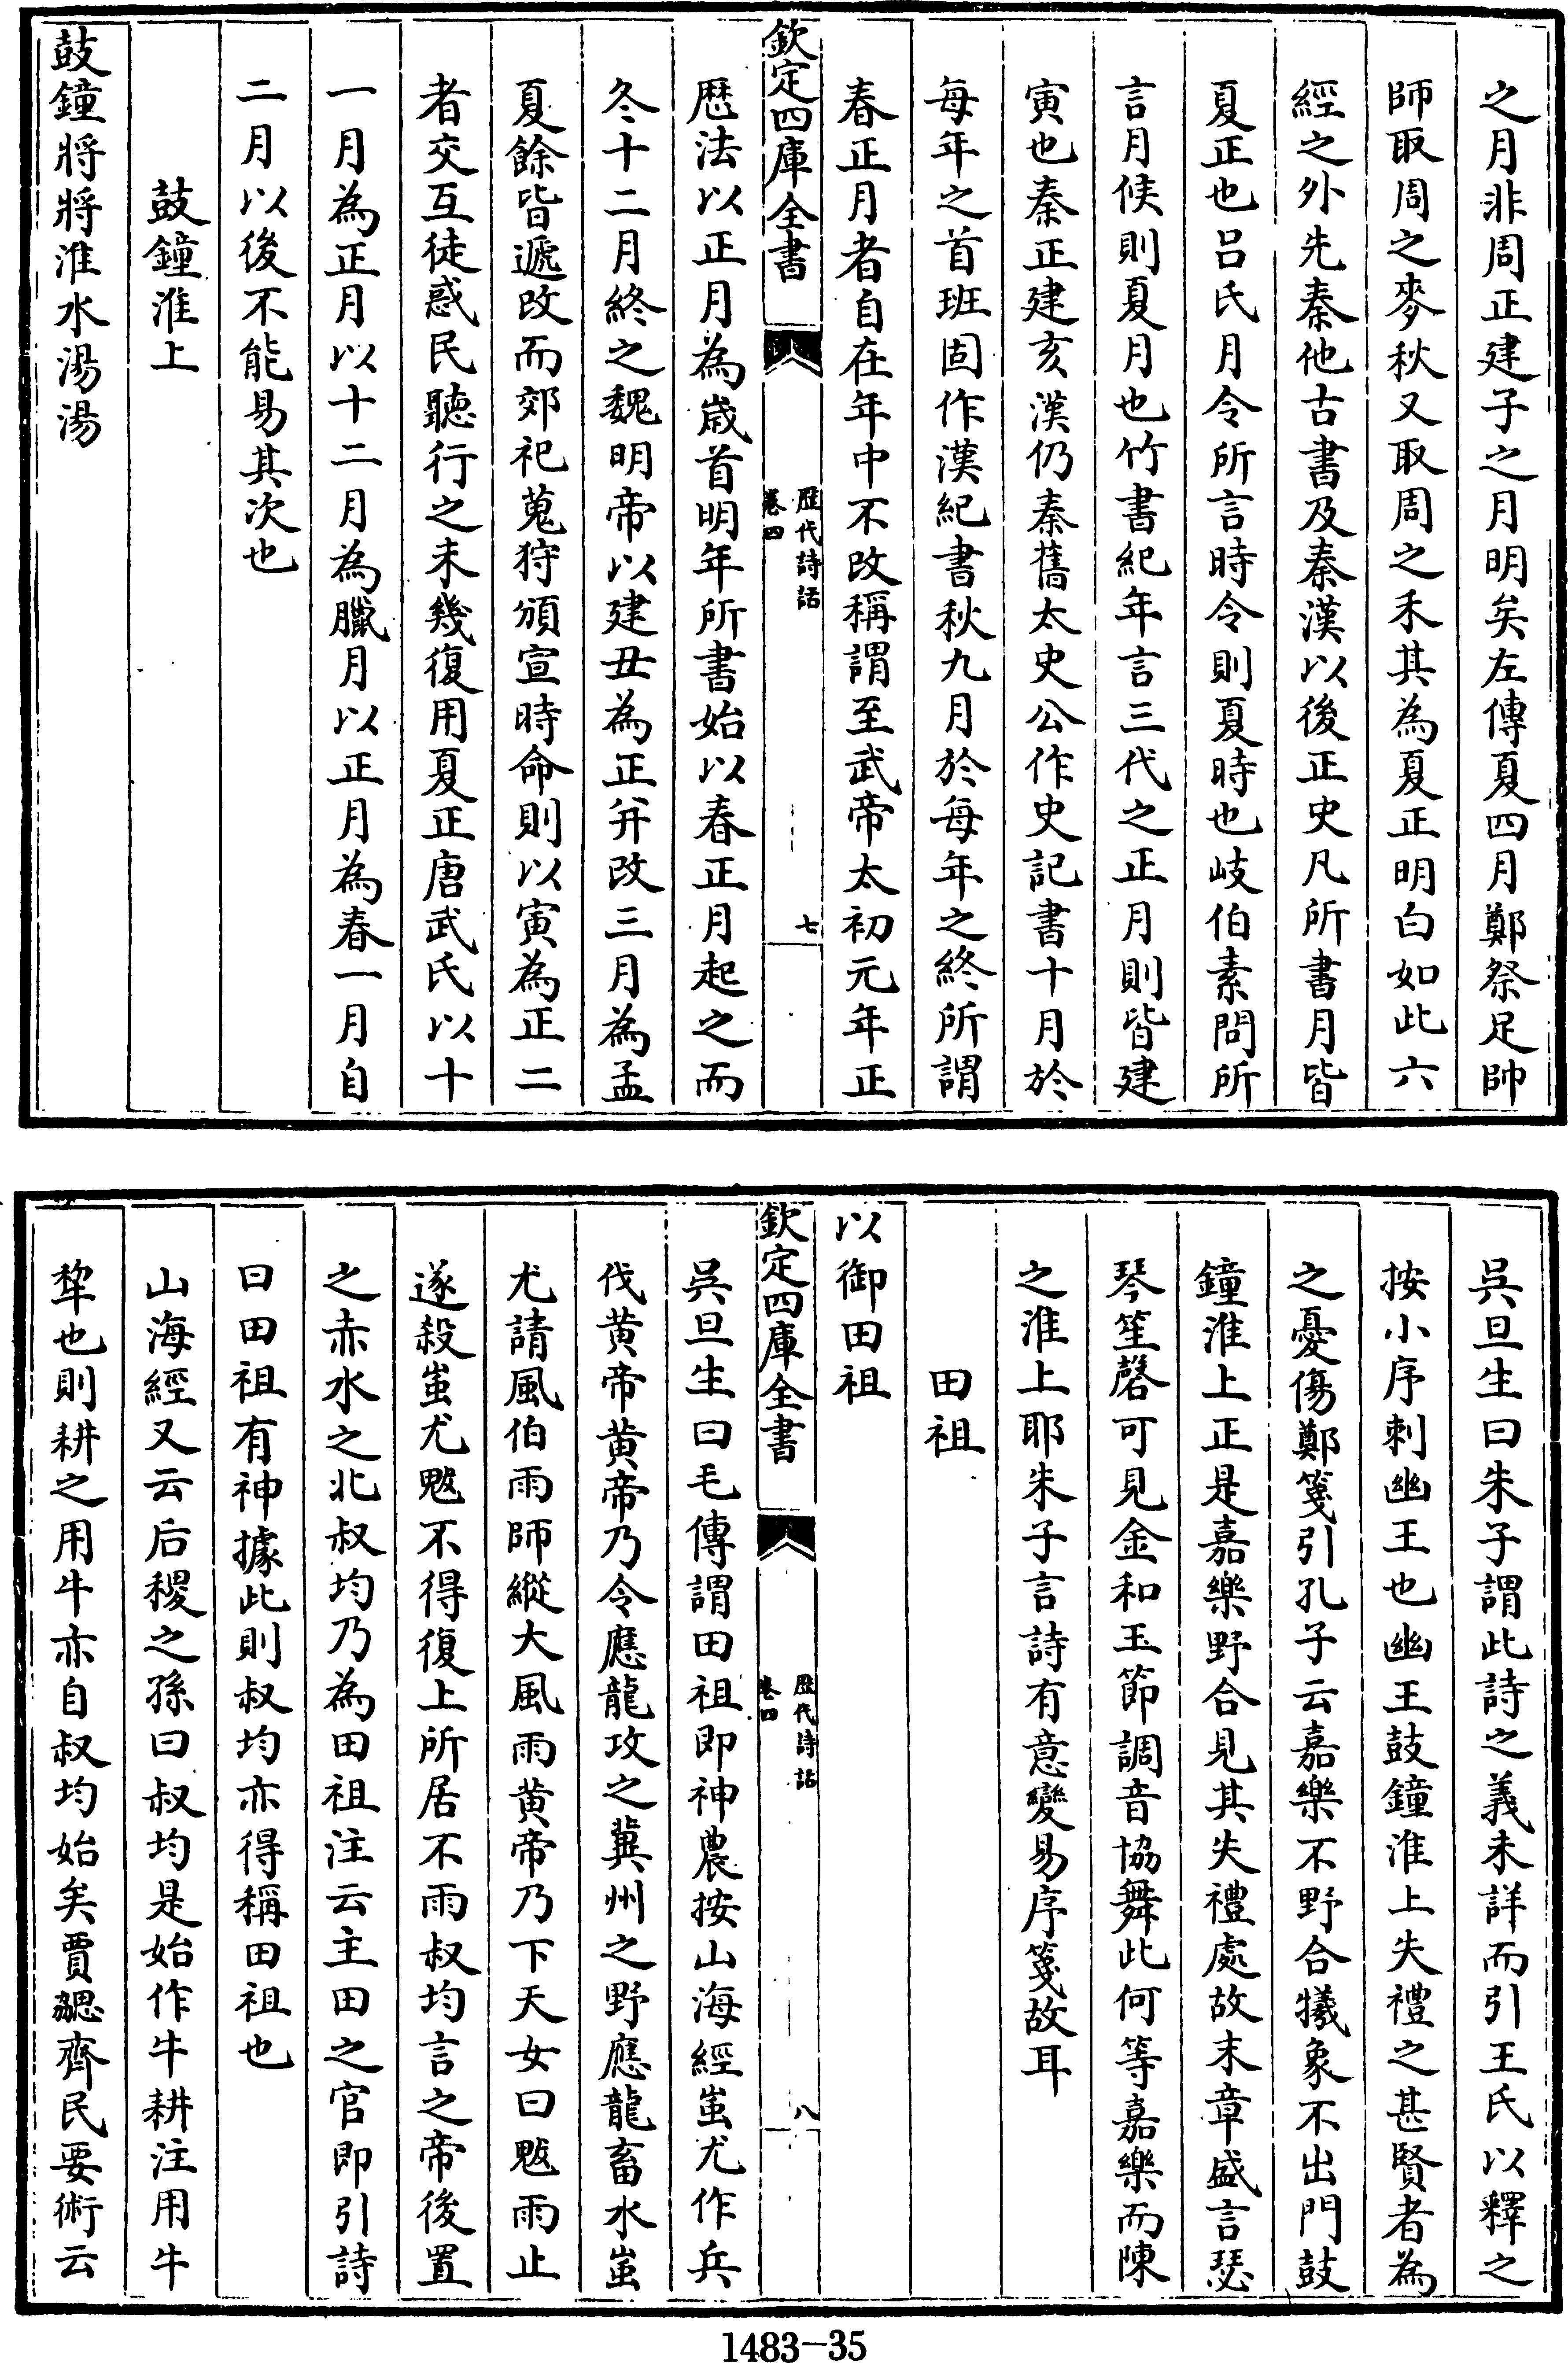 之月非周正建子之月明矣左傳夏四月鄭祭足帥
師取周之麥秋又取周之禾其為夏正明白如此六
經之外先秦他古書及秦漢以後正史凡所書月皆
夏正也呂氏月令所言時令則夏時也岐伯素問所
言月候則夏月也竹書紀年言三代之正月則皆建
寅也秦正建亥漢仍秦舊太史公作史記書十月於
每年之首班固作漢紀書秋九月於每年之終所謂
春正月者自在年中不改稱謂至武帝太初元年正
欽定四庫全書
歷代詩話
卷四
七
歷法以正月為歲首明年所書始以春正月起之而
冬十二月終之魏明帝以建丑為正并改三月為孟
夏餘皆遞改而郊祀蒐狩頒宣時命則以寅為正二
者交互徒惑民聽行之未幾復用夏正唐武氏以十
一月為正月以十二月為臘月以正月為春一月自
二月以後不能易其次也
鼓鐘淮上
鼓鐘將將淮水湯湯
吳旦生曰朱子謂此詩之義未詳而引王氏以釋之
按小序刺幽王也幽王鼓鐘淮上失禮之甚賢者為
之憂傷鄭箋引孔子云嘉樂不野合犧象不出門鼓
鐘淮上正是嘉樂野合見其失禮處故末章盛言瑟
琴笙磬可見金和玉節調音協舞此何等嘉樂而陳
之淮上耶朱子言詩有意變易序箋故耳
田祖
以御田祖
欽定四庫全書
歷代詩話
卷四
八
吳旦生曰毛傳謂田祖即神農按山海經蚩尤作兵
伐黄帝黄帝乃令應龍攻之冀州之野應龍畜水蚩
尤請風伯雨師縱大風雨黄帝乃下天女曰魃雨止
遂殺蚩尤魃不得復上所居不雨叔均言之帝後置
之赤水之北叔均乃為田祖注云主田之官即引詩
曰田祖有神據此則叔均亦得稱田祖也
山海經又云后稷之孫曰叔均是始作牛耕注用牛
犂也則耕之用牛亦自叔均始矣賈勰齊民要術云
1483-35